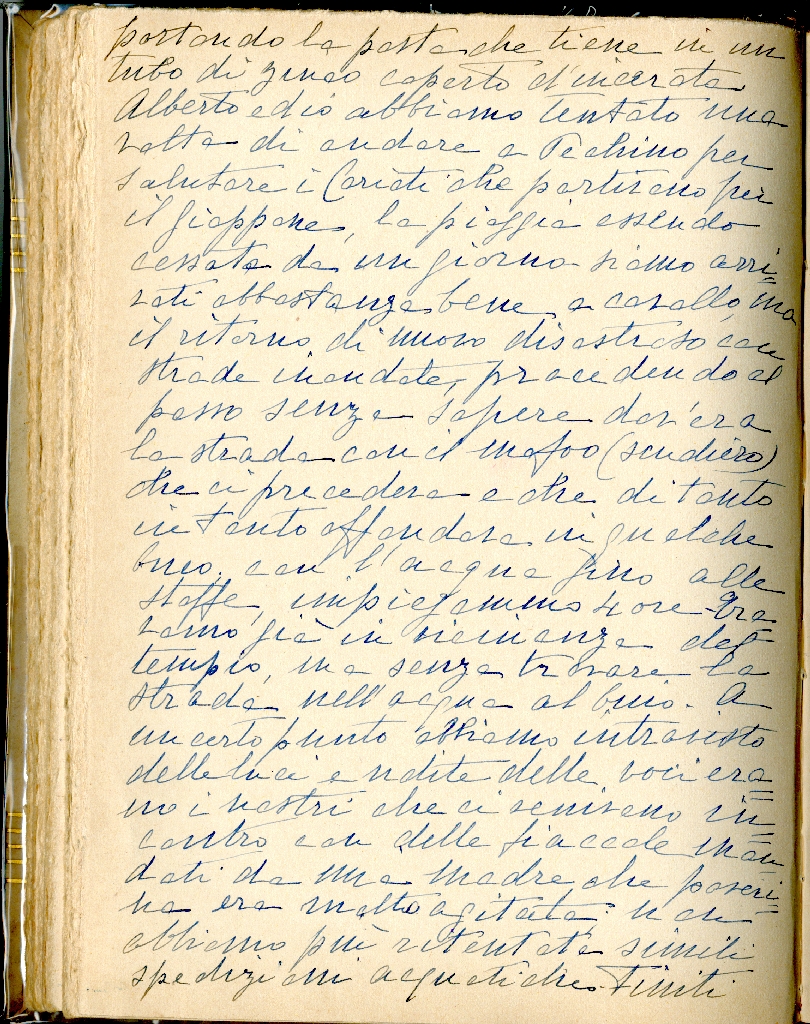 portando la posta che tiene in un
tubo di zinco coperto d'incerata
Alberto ed io abbiamo tentato una
volta di andare a Pechino per
salutare i Cariati che partivano per
il Giappone, la pioggia essendo
cessata da un giorno siamo arri=
vati abbastanza bene a cavallo, ma
il ritorno di nuovo disastroso con
strade inondate, procedendo al
passo senza sapere dov'era
la strada con il mafoo (scudiero)
che ci precedeva e che di tanto
in tanto affondava in qualche
buco, con l'acqua fino alle
staffe, impiegammo 4 ore. Era=
vamo già in vicinanza del
tempio, ma senza trovare la
strada nell'acqua al buio. A
un certo punto abbiamo intravisto
delle luci e udite delle voci era=
no i nostri che ci venivano in=
contro con delle fiaccole man=
dati da mia madre che poveri=
na era molto agitata; non
abbiamo più ritentata simili
spedizioni acquatiche. Finiti